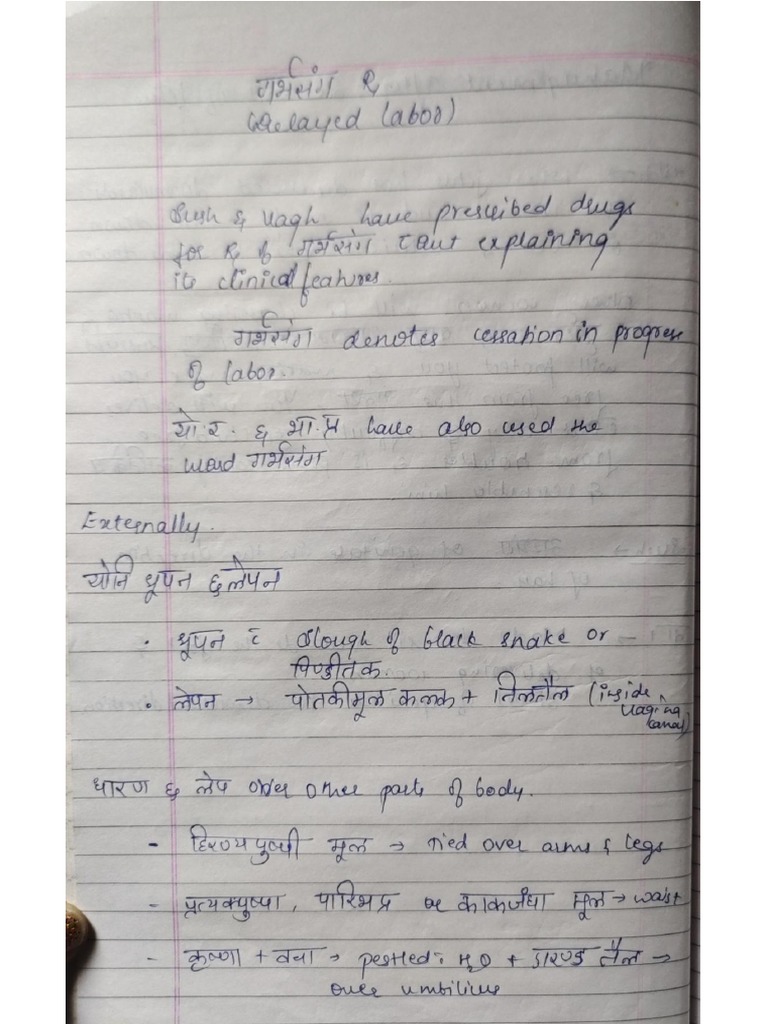 गर्भसंग ℞
(Delayed labor)
Sush & Vagh have prescribed drugs
for ℞ of गर्भसंग c̄out explaining
its clinical features.
गर्भसंग denotes cessation in progress
of labor.
यो.र. & भा.प्र have also used the
word गर्भसंग
Externally.
योनि धूपन & लेपन
• धूपन c̄ slough of black snake or
पिण्डीतक
• लेपन → पोतकीमूल कल्क + तिलतैल (inside vaginal canal)
धारण & लेप over other parts of body.
- हिरण्यपुष्पी मूल → tied over arms & legs
- प्रत्यक्पुष्पा, पारिभद्र or काकजंघा मूल → waist
- कृष्णा + वचा → pestled c̄ H2O + एरण्ड तैल →
over umbilicus